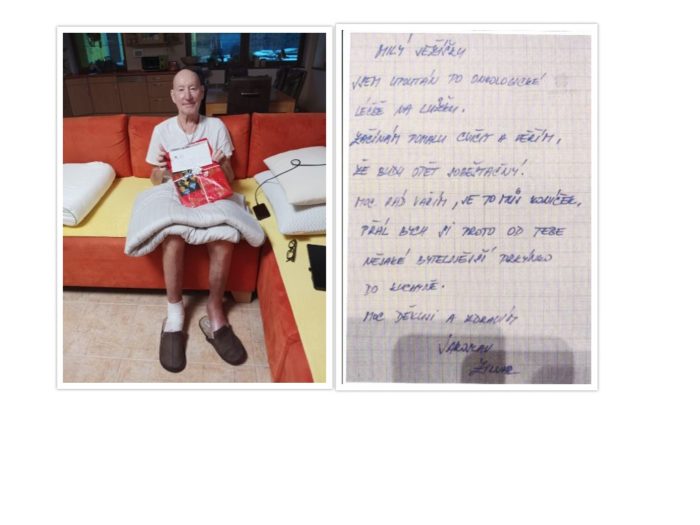 MILÝ JEŽÍŠKU
JSEM UPOUTÁN PO ONKOLOGICKÉ
LÉČBĚ NA LŮŽKU.
ZAČÍNÁM POMALU CVIČIT A VĚŘÍM,
ŽE BUDU OPĚT SOBĚSTAČNÝ.
MOC RÁD VAŘÍM, JE TO MŮJ KONÍČEK,
PŘÁL BYCH SI PROTO OD TEBE
NĚJAKÉ BYTELNĚJŠÍ PRKÝNKO
DO KUCHYNĚ.
MOC DĚKUJI A ZDRAVÍM
JAROSLAV